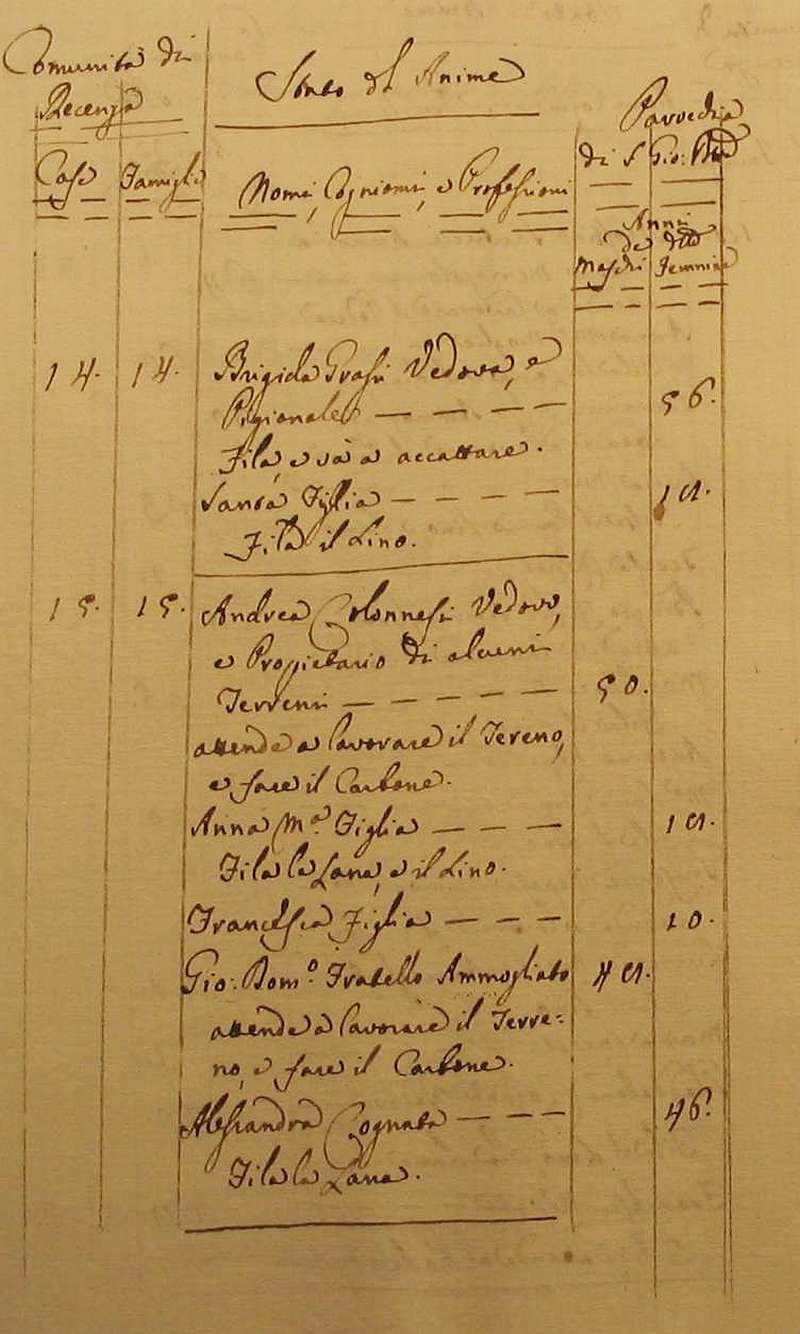 Comunità di
Recenza
Stato dl Anime
Parochia
di S Gio: Bta
Case Famiglie Nomi, Cogniomi, e Professioni
Anni
de dtti
Maschi Femmine
14. 14. Brigida Grassi Vedova, e
Pigionale — — — — 56.
Fila, e và a accattare.
Santa Figlia — — — — 19.
Fila il Lino.
15. 15. Andrea Colonnesi Vedovo,
e Propietario di alcuni
Terreni — — — — — 50.
attende a lavorare il Tereno,
e fare il Carbone.
Anna Ma. Figlia — — — 19.
Fila la Lana, e il Lino.
Francesca Figlia — — — 10.
Gio: Dom.o Fratello Ammogliato 49.
attende a lavorare il Terre:
no, e fare il Carbone.
Alessandra Cognata — — — 46.
Fila la Lana.